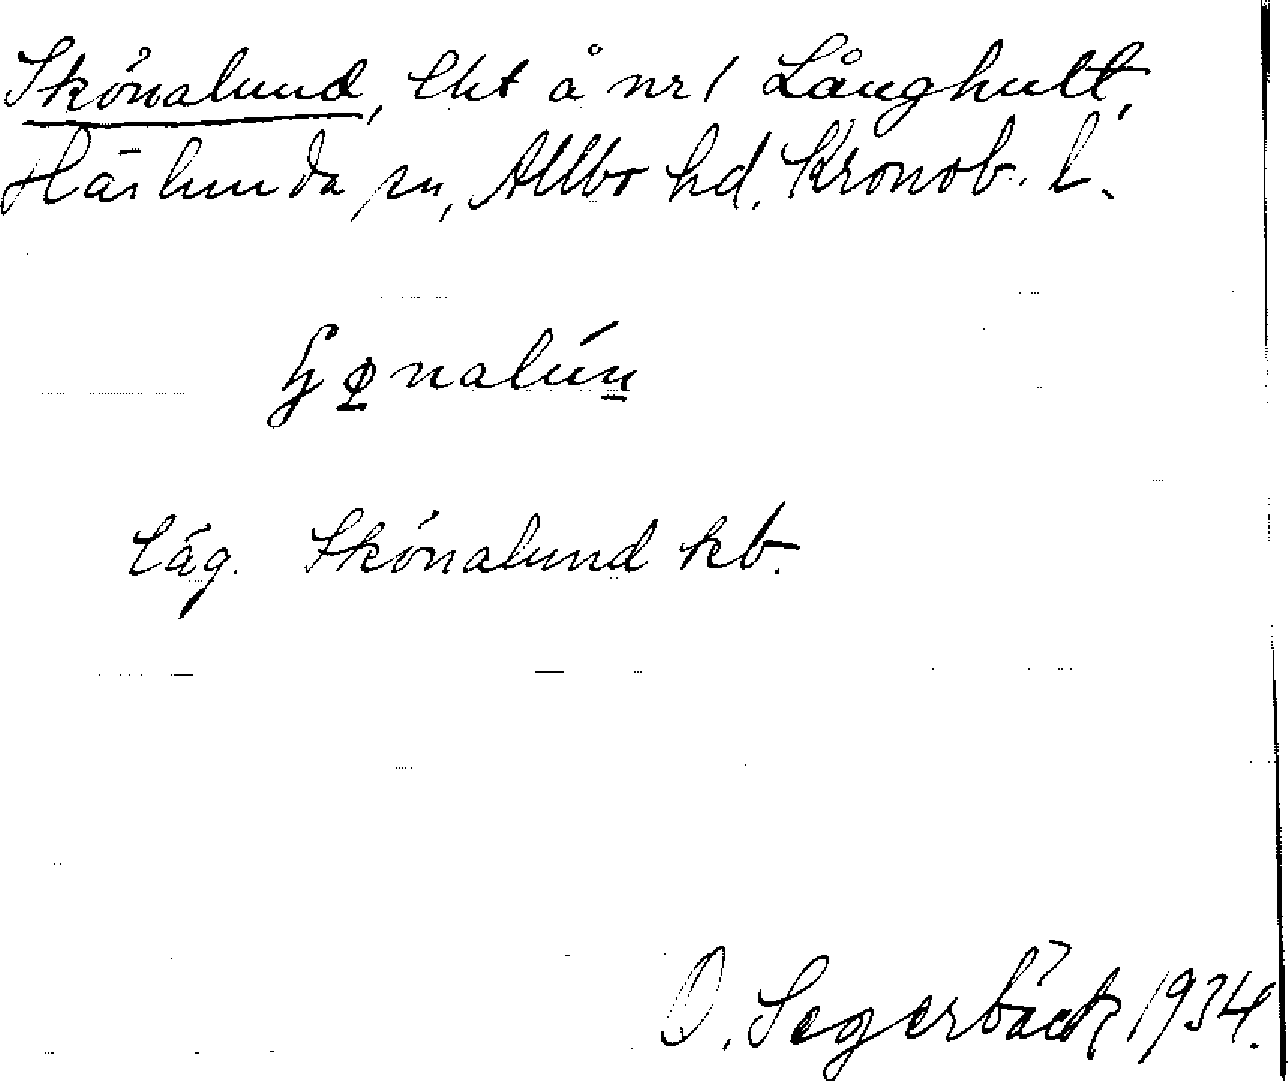 Skönalund, lht å nr 1 Långhult,
Härlunda sn, Allbo hd, Kronob. l.
lág. Skönalund kb.
O. Segerbäck 1934.